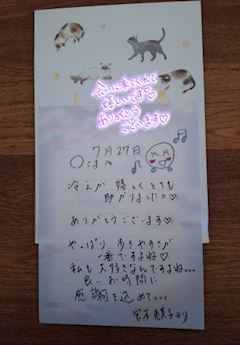 会いに来てくれて
嬉しいです♡
ありがとう
ございます♡
7月27日
〇さま
冷えが 嬉しくとても
助かりました
ありがとうございます♡
やっぱり、あきやすが
一番ですよね♡
私も大好きなんですよね…
良いお時間に
感謝を込めて…
より